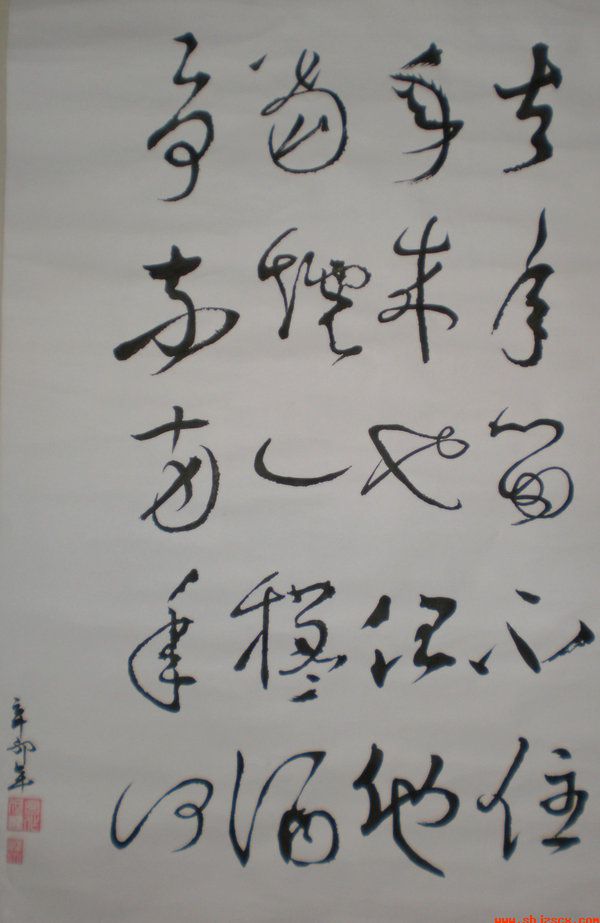 去年留不住
年来也任他
当爐一榼酒
争奈两年何
辛卯年